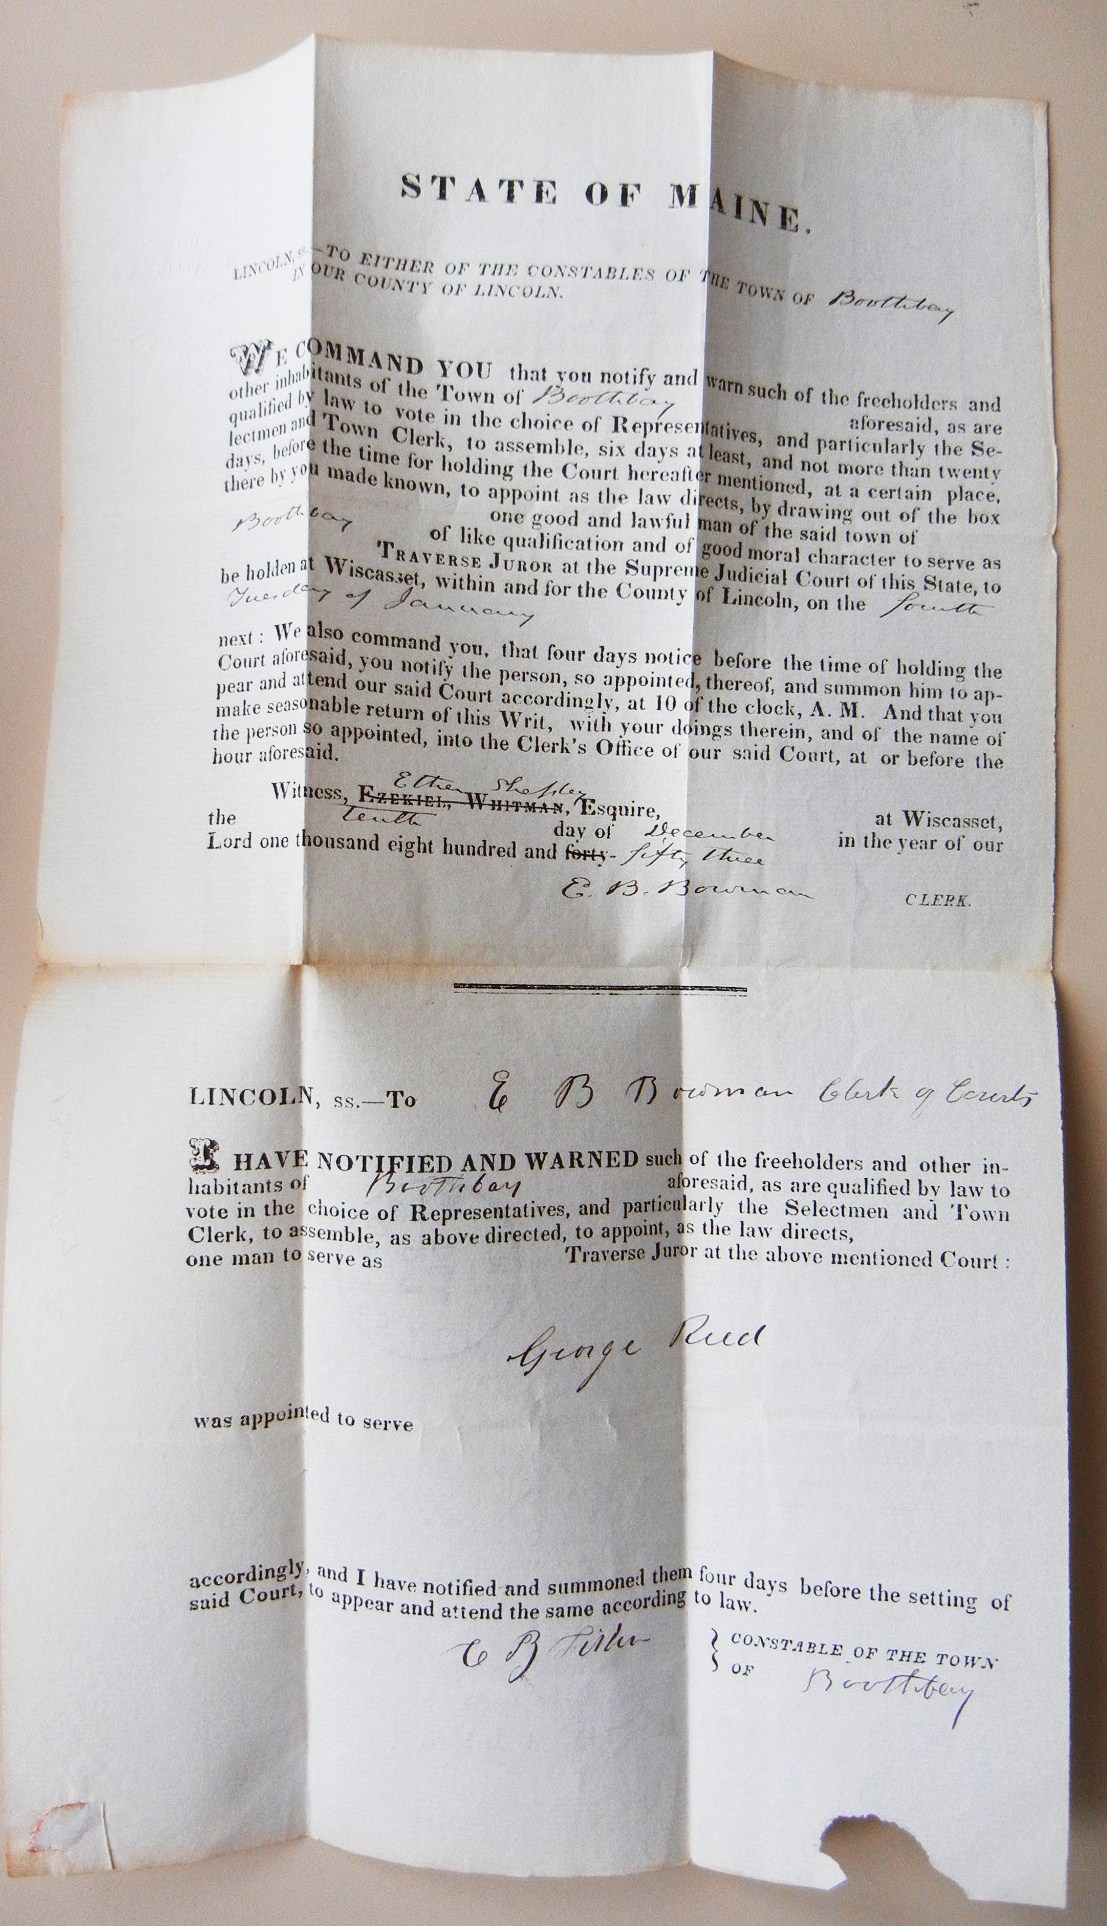 STATE OF MAINE.
LINCOLN, ss.—TO EITHER OF THE CONSTABLES OF THE TOWN OF Boothbay
IN OUR COUNTY OF LINCOLN.
WE COMMAND YOU that you notify and warn such of the freeholders and
other inhabitants of the Town of Boothbay aforesaid, as are
qualified by law to vote in the choice of Representatives, and particularly the Se-
lectmen and Town Clerk, to assemble, six days at least, and not more than twenty
days, before the time for holding the Court hereafter mentioned, at a certain place,
there by you made known, to appoint as the law directs, by drawing out of the box
one good and lawful man of the said town of
Boothbay of like qualification and of good moral character to serve as
TRAVERSE JUROR at the Supreme Judicial Court of this State, to
be holden at Wiscasset, within and for the County of Lincoln, on the fourth
Tuesday of January
next: We also command you, that four days notice before the time of holding the
Court aforesaid, you notify the person, so appointed, thereof, and summon him to ap-
pear and attend our said Court accordingly, at 10 of the clock, A. M. And that you
make seasonable return of this Writ, with your doings therein, and of the name of
the person so appointed, into the Clerk's Office of our said Court, at or before the
hour aforesaid.
Ether Shepley
Witness, EZEKIEL WHITMAN, Esquire, at Wiscasset,
the tenth day of December in the year of our
Lord one thousand eight hundred and forty- fifty three
E. B. Bowman CLERK.
LINCOLN, ss.—To E B Bowman Clerk of Courts
I HAVE NOTIFIED AND WARNED such of the freeholders and other in-
habitants of Boothbay aforesaid, as are qualified by law to
vote in the choice of Representatives, and particularly the Selectmen and Town
Clerk, to assemble, as above directed, to appoint, as the law directs,
one man to serve as Traverse Juror at the above mentioned Court:
George Reed
was appointed to serve
accordingly, and I have notified and summoned them four days before the setting of
said Court, to appear and attend the same according to law.
E B Fisher } CONSTABLE OF THE TOWN
OF Boothbay